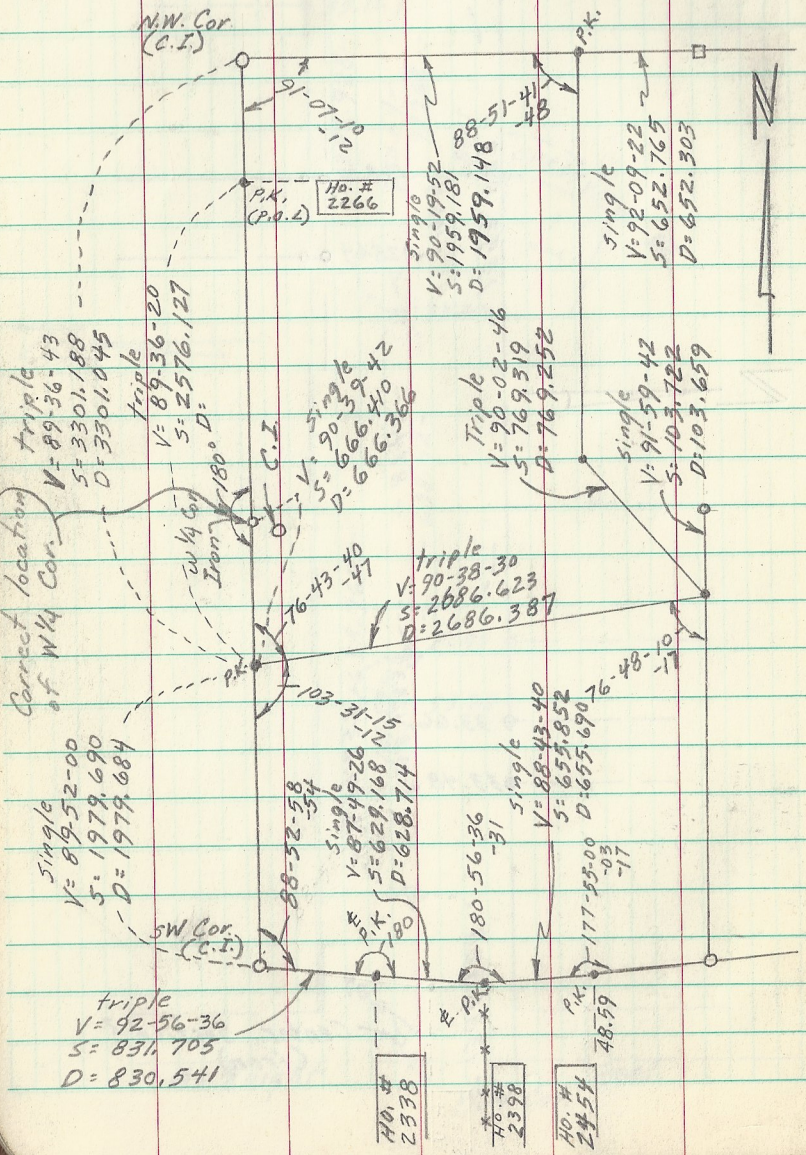 N.W. Cor.
(C.I.)
P.K.
91-07-16
-12
88-51-41
-48
P.K.
(P.O.L)
HO. #
2266
Single
V=90-19-52
S=1959.181
D=1959.148
single
V=92-09-22
S=652.765
D=652.303
N
triple
V=89-36-43
S=3301.188
D=3301.045
triple
V=89-36-20
S=2576.127
D=
Single
V=90-39-42
S=666.410
D=666.366
Triple
V=90-02-46
S=769.319
D=769.252
single
V=91-59-42
S=103.722
D=103.659
Correct location
of W¼ Cor.
180°
C.I.
W¼ Cor
Iron
76-43-40
-47
triple
V=90-38-30
S=2686.623
D=2686.387
P.K.
103-31-15
-12
76-48-10
-17
Single
V=89-52-00
S=1979.690
D=1979.684
88-52-58
-54
Single
V=87-49-26
S=629.168
D=628.714
180-56-36
-31
Single
V=88-43-40
S=655.852
D=655.690
177-55-00
-03
-17
SW Cor.
(C.I.)
℄
P.K.
180
℄ P.K.
P.K.
48.59
triple
V=92-56-36
S=831.705
D=830.541
HO. #
2338
HO. #
2398
HO. #
2454